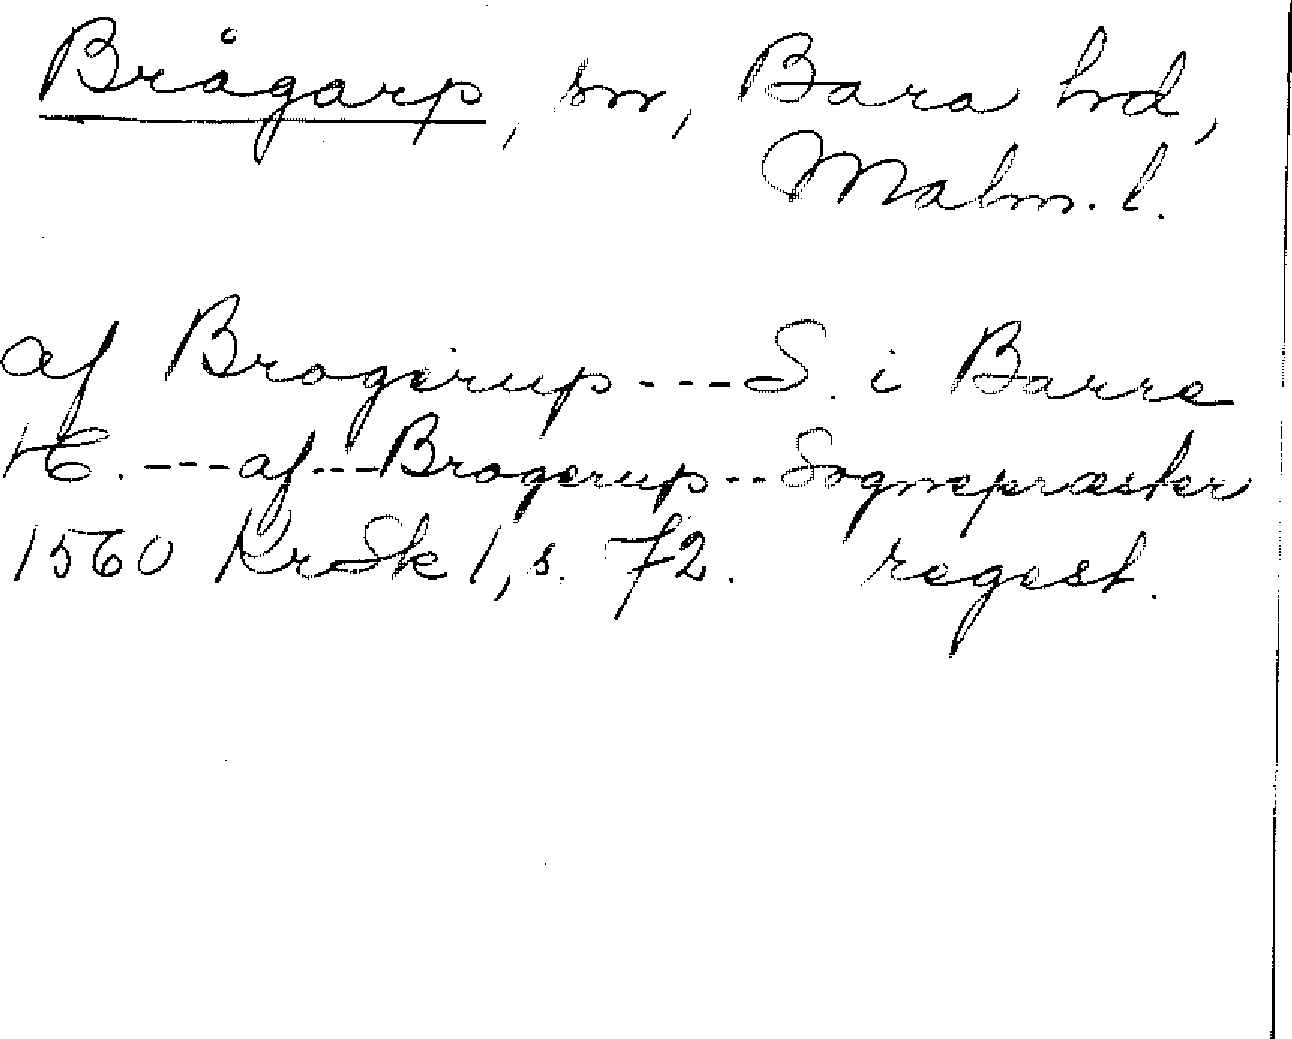 Brågarp, sn, Bara hrd,
Malm. l.
af Brogerup---S. i Barre
H. ---af---Brogerup--Sognepræster
1560 KrSk 1, s. 72. regest.